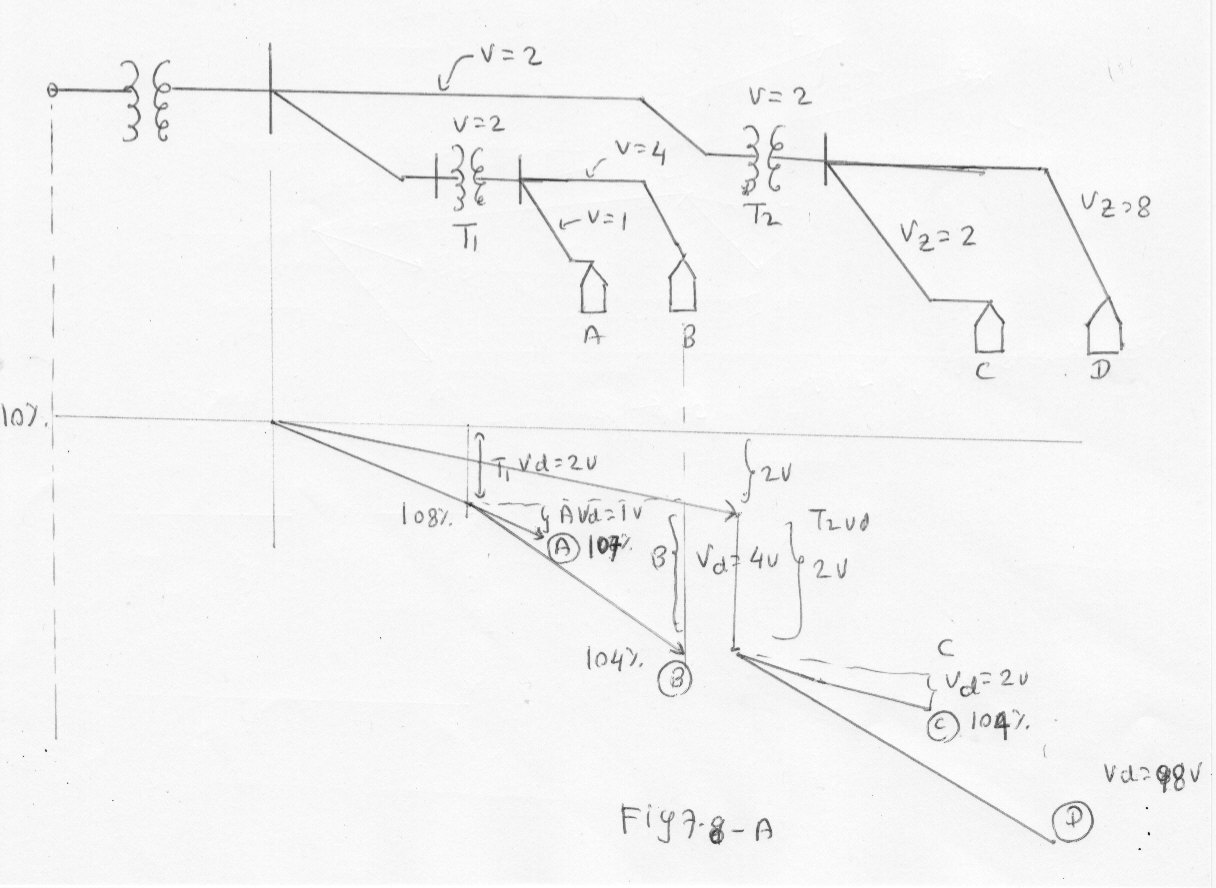 V=2
V=2
V=2
V=4
V=1
T1
T2
VZ=2
VZ=8
A
B
C
D
T1 Vd=2v
2v
108%
A Vd=1v
A 107%
B
Vd=4v
T2 vd
2v
104%
B
C
Vd=2v
C 104%
D
Fig 7.8-A